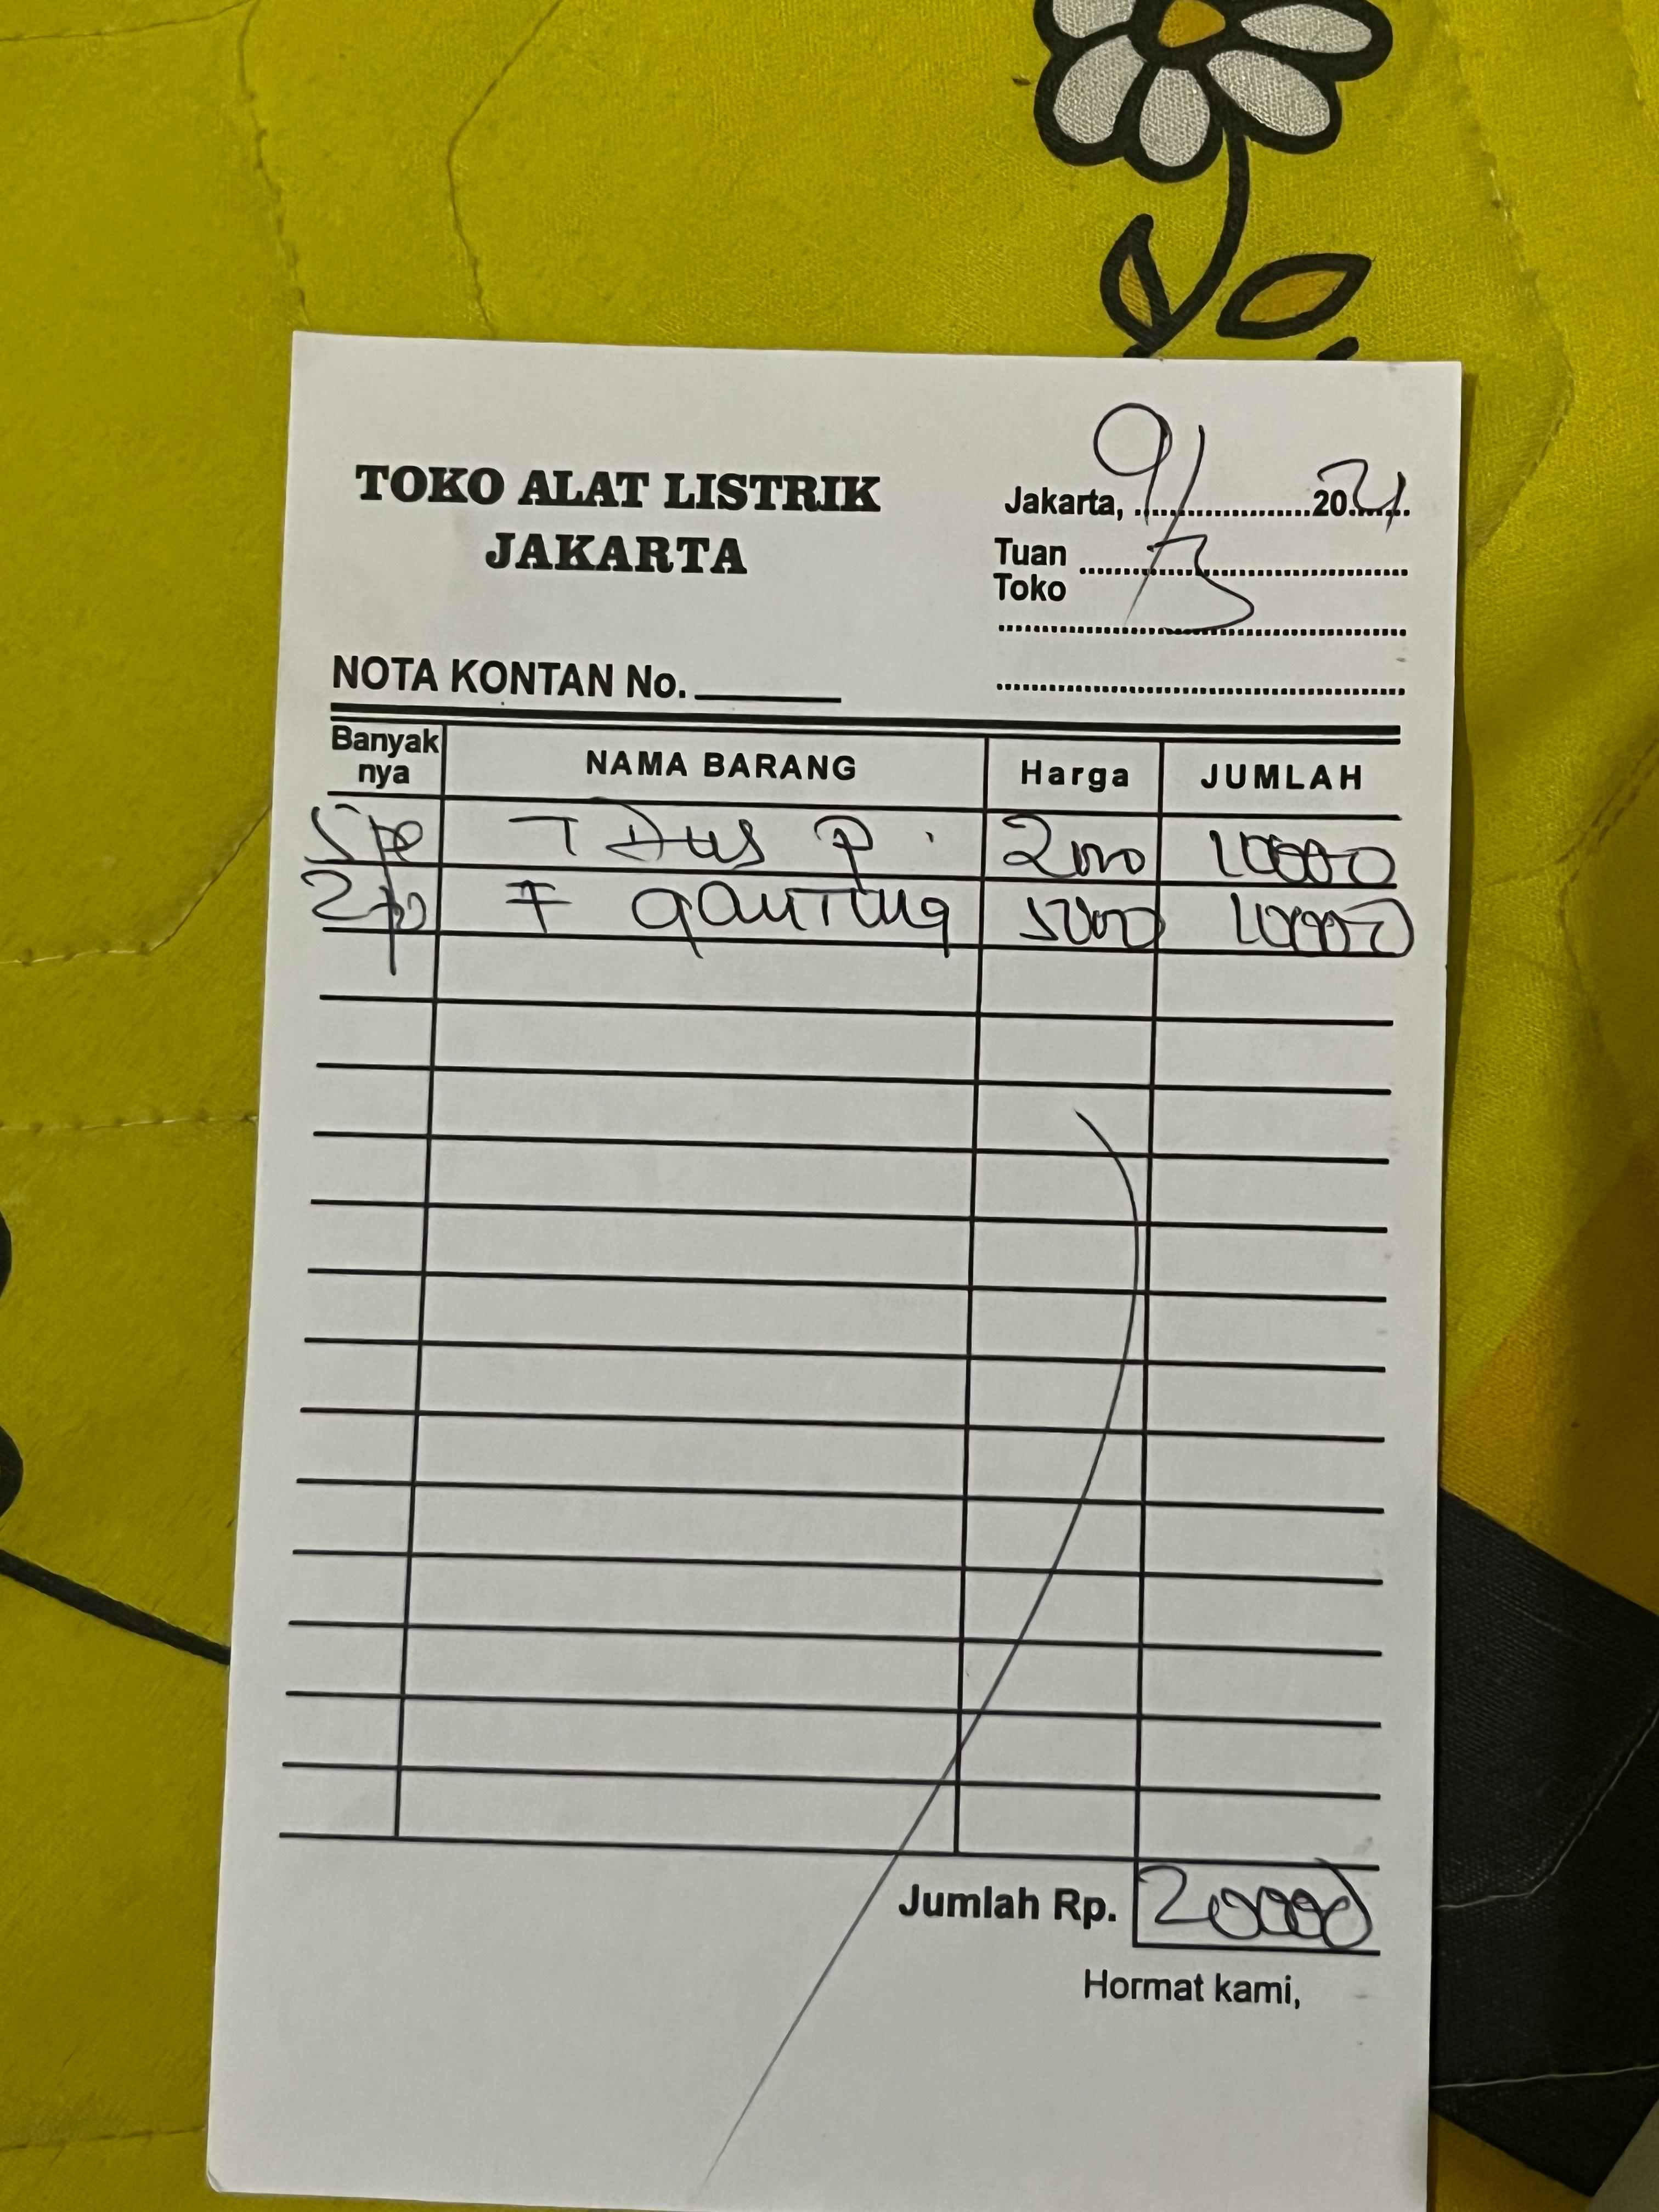 TOKO ALAT LISTRIK
JAKARTA
Jakarta, 9/3 2021
Tuan
Toko
NOTA KONTAN No.
Banyak nya NAMA BARANG Harga JUMLAH
5pc T Dus P. 2000 10000
2pc F gantung 5000 10000
Jumlah Rp. 20000
Hormat kami,